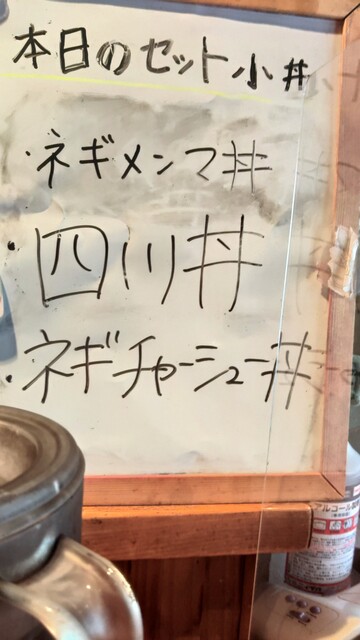 本日のセット小丼
・ネギメンマ丼
・四川丼
・ネギチャーシュー丼
アルコール